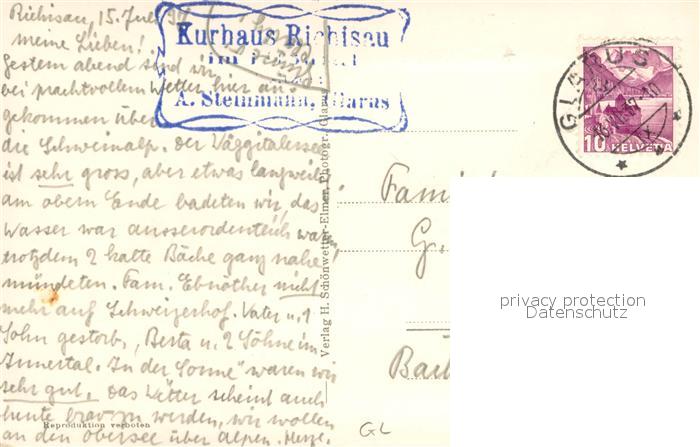 Richisau, 15. Juli 37
meine Lieben!
Gestern abend sind wir
bei prachtvollem Wetter hier an-
gekommen über
die Schweinalp. Der Väggitalersee
ist sehr gross, aber etwas langweilig
am obern Ende badeten wir, das
Wasser war ausserordentlich warm
trotzdem 2 kalte Bäche ganz nahe
mündeten. Fam. Ebnöther nicht
mehr auf Schweizerhof. Vater u. 1
Sohn gestorb, Berta u. 2 Söhne im
Innertal. In der Sonne" waren wir
sehr gut. Das Wetter scheint auch
heute brav zu werden, wir wollen
an den obersee über Alpen. Herzl.
Kurhaus Richisau
A. Steinmann, Glarus
Verlag H. Schönwetter-Elmer, Photogr., Glarus
Reproduktion verboten
GLARUS
10 HELVETIA
Fami
G.
Bad
GL
privacy protection
Datenschutz